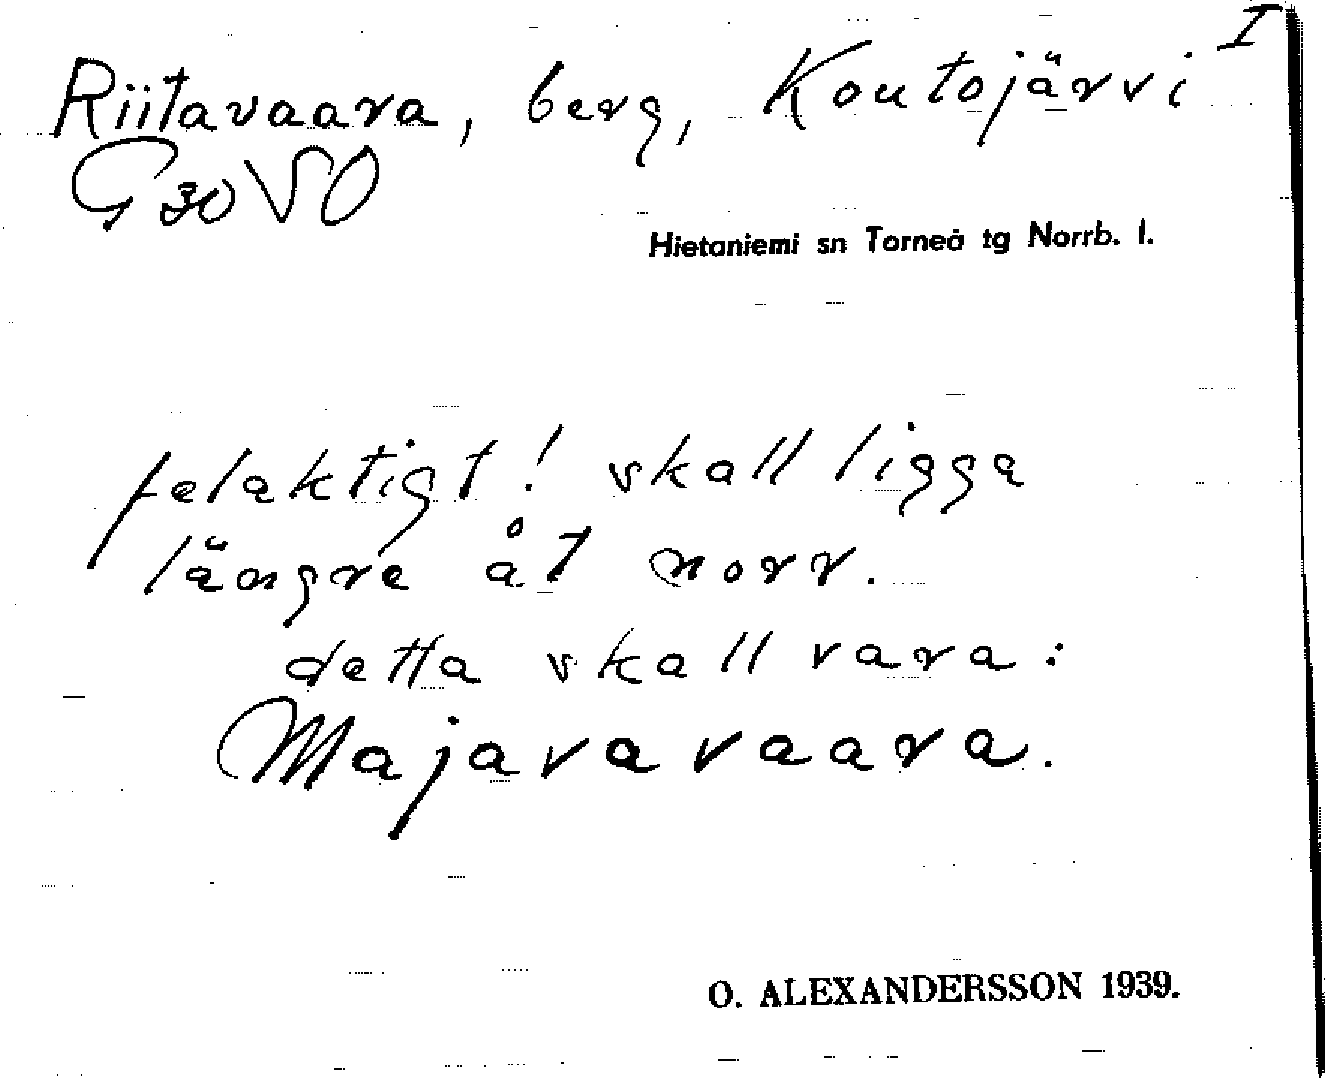 I
Riitavaara, berg, Koutojärvi
G 30 VSO
Hietaniemi sn Torneå tg Norrb. l.
felaktigt! skall ligga
längre åt norr.
detta skall vara:
Majavavaara.
O. ALEXANDERSSON 1939.